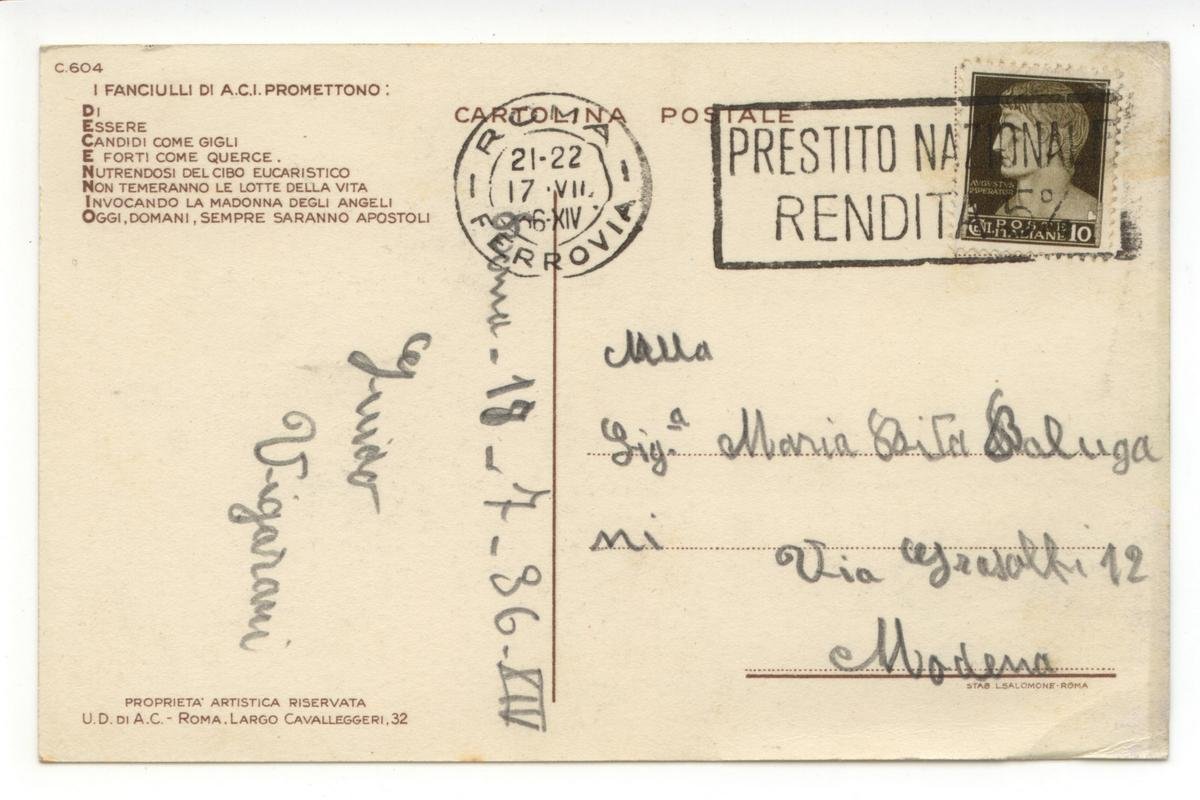 C.604
I FANCIULLI DI A.C.I. PROMETTONO:
DI
ESSERE
CANDIDI COME GIGLI
E FORTI COME QUERCE.
NUTRENDOSI DEL CIBO EUCARISTICO
NON TEMERANNO LE LOTTE DELLA VITA
INVOCANDO LA MADONNA DEGLI ANGELI
OGGI, DOMANI, SEMPRE SARANNO APOSTOLI
CARTOLINA POSTALE
ROMA
21-22
17 VII
36-XIV
FERROVIA
PRESTITO NAZIONALE
RENDIT 5%
AVGVSTVS
IMPERATOR
CENT. POSTE ITALIANE 10
Roma - 17 - 7 - 36 - XIV
Guido
Vigarani
Alla
Sig.a Maria Rita Baluga
ni
Via 12
Modena
STAB. L. SALOMONE - ROMA
PROPRIETA' ARTISTICA RISERVATA
U.D. DI A.C. - ROMA, LARGO CAVALLEGGERI, 32